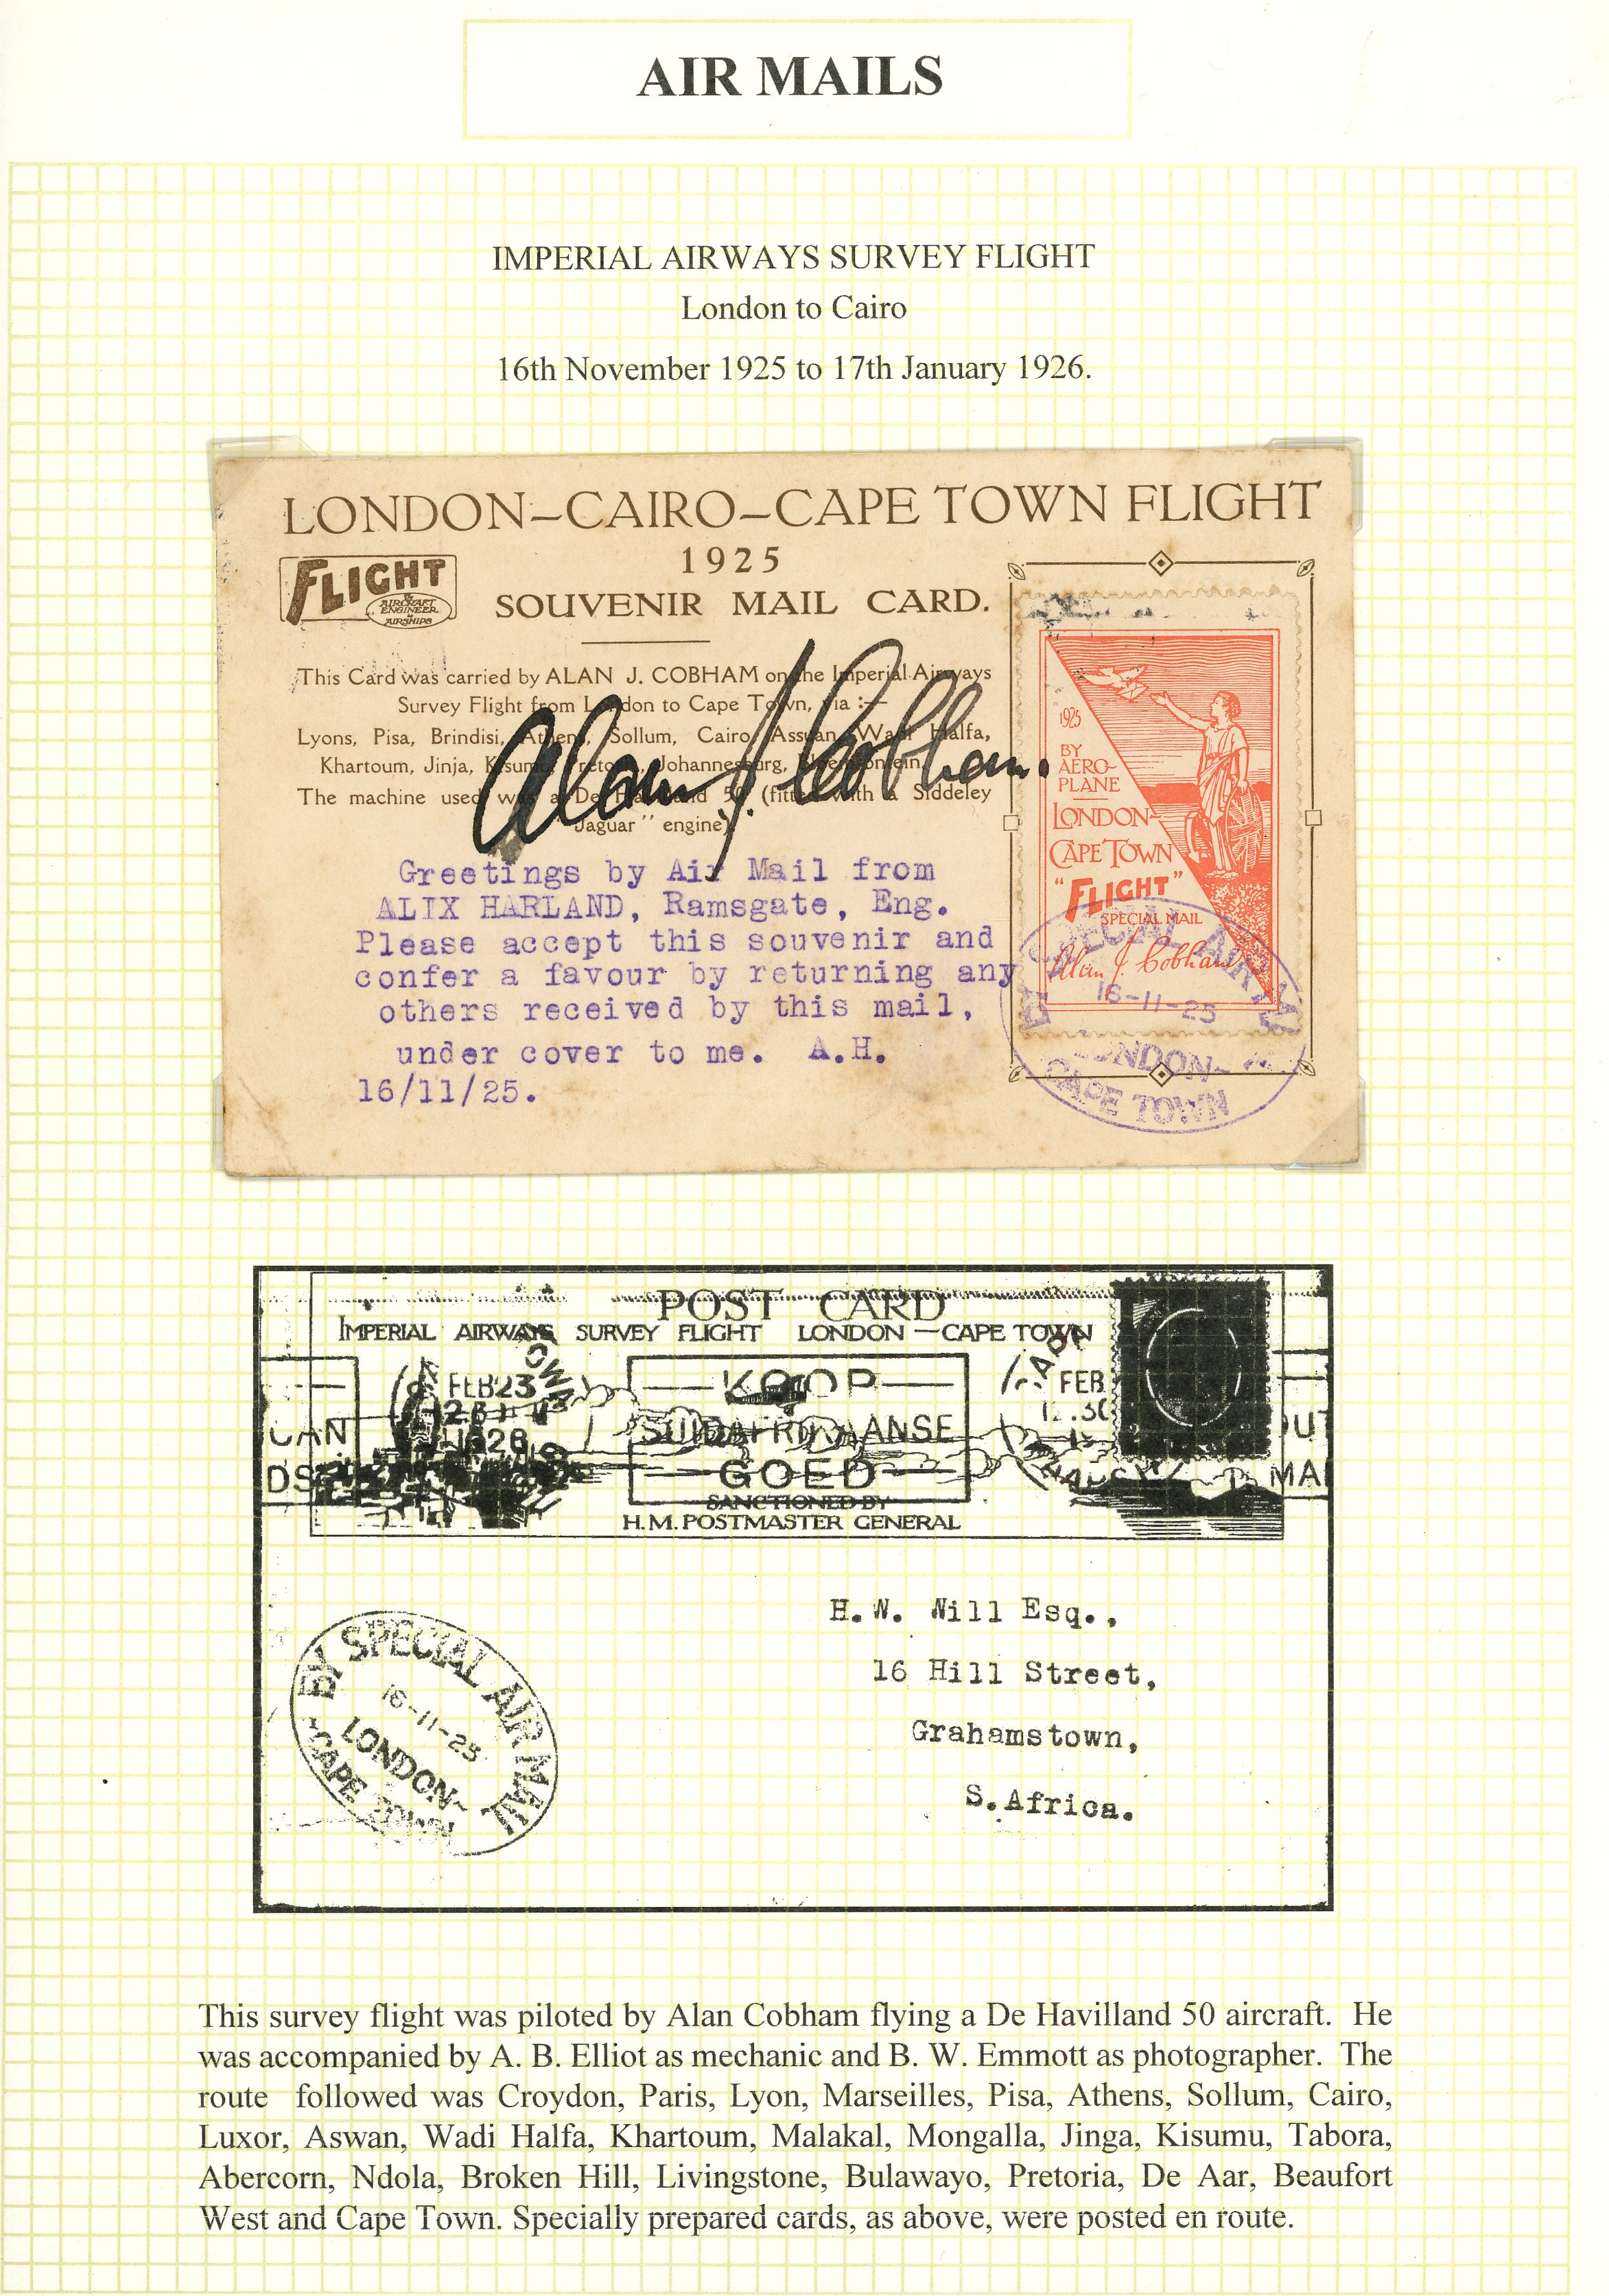 AIR MAILS
IMPERIAL AIRWAYS SURVEY FLIGHT
London to Cairo
16th November 1925 to 17th January 1926.
LONDON–CAIRO–CAPE TOWN FLIGHT
1925
FLIGHT
& AIRCRAFT ENGINEER & AIRSHIPS
SOUVENIR MAIL CARD.
This Card was carried by ALAN J. COBHAM on the Imperial Airways
Survey Flight from London to Cape Town, via :—
Lyons, Pisa, Brindisi, Athens, Sollum, Cairo, Assuan, Wadi Halfa,
Khartoum, Jinja, Kisumu, Pretoria, Johannesburg, Bloemfontein.
The machine used was a De Havilland 50 (fitted with a Siddeley
"Jaguar" engine).
Alan J. Cobham.
Greetings by Air Mail from
ALIX HARLAND, Ramsgate, Eng.
Please accept this souvenir and
confer a favour by returning any
others received by this mail,
under cover to me. A.H.
16/11/25.
1925
BY
AERO-
PLANE
LONDON-
CAPE TOWN
"FLIGHT"
SPECIAL MAIL
Alan J. Cobham
SPECIAL AIR
16-11-25
LONDON-
CAPE TOWN
POST CARD
IMPERIAL AIRWAYS SURVEY FLIGHT LONDON – CAPE TOWN
FEB 23
KOOP
FEB
CAN
SUIDAFRIKAANSE
DS
GOED
MA
SANCTIONED BY
H.M. POSTMASTER GENERAL
H.W. Will Esq.,
16 Hill Street,
Grahamstown,
S.Africa.
BY SPECIAL AIR MAIL
16-11-25
LONDON-
CAPE TOWN
This survey flight was piloted by Alan Cobham flying a De Havilland 50 aircraft. He
was accompanied by A. B. Elliot as mechanic and B. W. Emmott as photographer. The
route followed was Croydon, Paris, Lyon, Marseilles, Pisa, Athens, Sollum, Cairo,
Luxor, Aswan, Wadi Halfa, Khartoum, Malakal, Mongalla, Jinga, Kisumu, Tabora,
Abercorn, Ndola, Broken Hill, Livingstone, Bulawayo, Pretoria, De Aar, Beaufort
West and Cape Town. Specially prepared cards, as above, were posted en route.